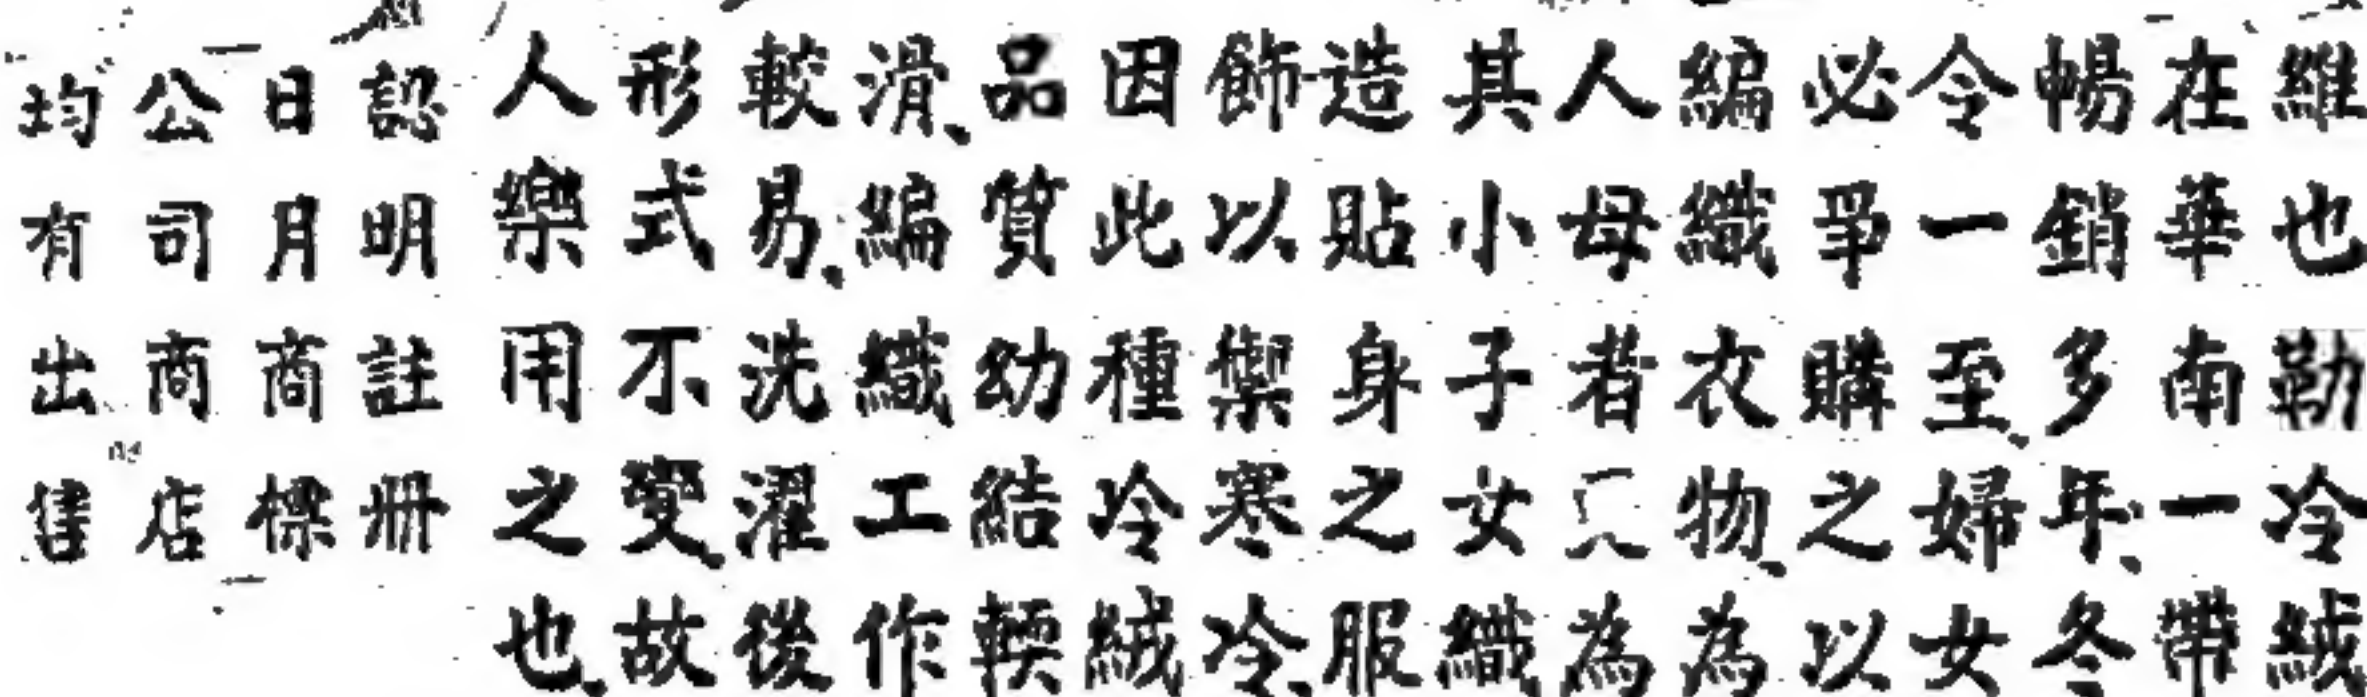 維也勒冷絨
在華南一帶
暢銷多年、冬
令一至、婦女
必爭購之以
編織衣物、為
人母者為
其小子女織
造貼身之服
飾以禦寒冷、
因此種冷絨
品質幼結輭
滑、編織工作
較易、洗濯後
形式不變、故
人樂用之也、
認明註冊
日月商標
公司商店
均有出售